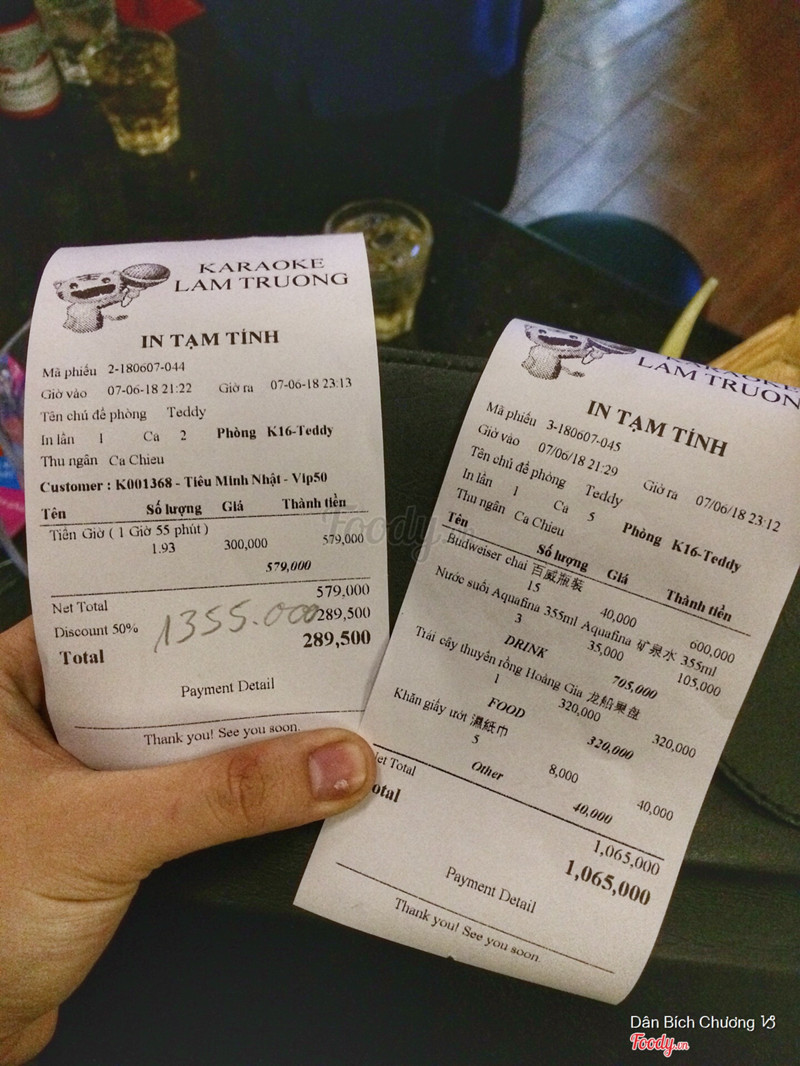 KARAOKE
LAM TRUONG
IN TẠM TÍNH
Mã phiếu 2-180607-044
Giờ vào 07-06-18 21:22 Giờ ra 07-06-18 23:13
Tên chủ đề phòng Teddy
In lần 1 Ca 2 Phòng K16-Teddy
Thu ngân Ca Chieu
Customer : K001368 - Tiêu Minh Nhật - Vip50
Tên Số lượng Giá Thành tiền
Tiền Giờ ( 1 Giờ 55 phút )
1.93 300,000 579,000
579,000
Net Total 579,000
Discount 50% 289,500
1355.000
Total 289,500
Payment Detail
Thank you! See you soon.
KARAOKE
LAM TRUON
IN TẠM TÍNH
Mã phiếu 3-180607-045
Giờ vào 07/06/18 21:29 Giờ ra 07/06/18 23:12
Tên chủ đề phòng Teddy
In lần 1 Ca 5 Phòng K16-Teddy
Thu ngân Ca Chieu
Tên Số lượng Giá Thành tiền
Budweiser chai 百威瓶裝
15 40,000 600,000
Nước suối Aquafina 355ml Aquafina 矿泉水 355ml
3 35,000 105,000
DRINK 705,000
Trái cây thuyền rồng Hoàng Gia 龙船果盘
1 320,000 320,000
FOOD 320,000
Khăn giấy ướt 濕紙巾
5 8,000 40,000
Other 40,000
et Total 1,065,000
otal 1,065,000
Payment Detail
Thank you! See you soon.
Foody.vn
Dân Bích Chương
Foody.vn